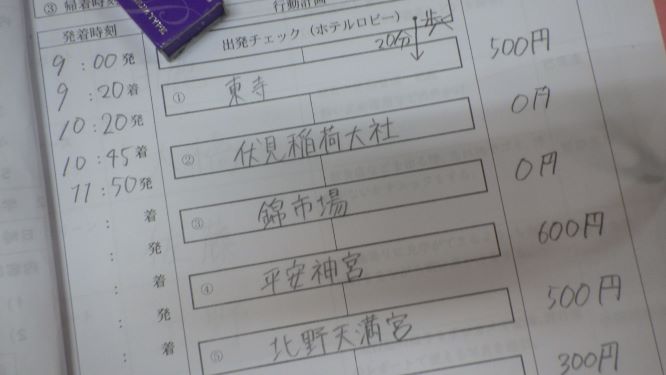 ③ 帰着時刻
行動計画
発着時刻
出発チェック（ホテルロビー）
20分
500円
9:00発
9:20着
① 東寺
0円
10:20発
10:45着
② 伏見稲荷大社
0円
11:50発
: 着
③ 錦市場
600円
: 発
: 着
④ 平安神宮
500円
: 発
: 着
⑤ 北野天満宮
300円